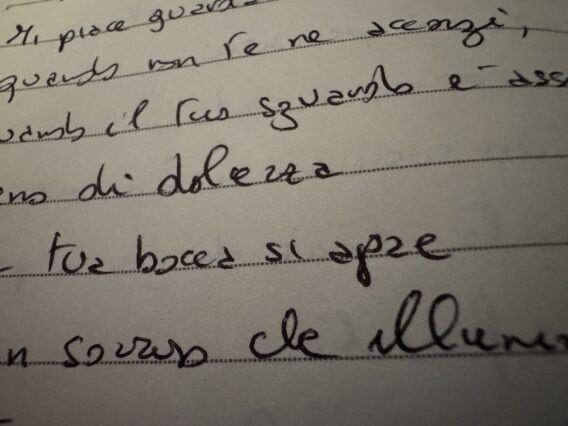 Mi piace guarda
quando non te ne acenzi,
uando il tuo sguardo è ass
eno di dolcezza
tua bocca si apre
n sorriso che illumin